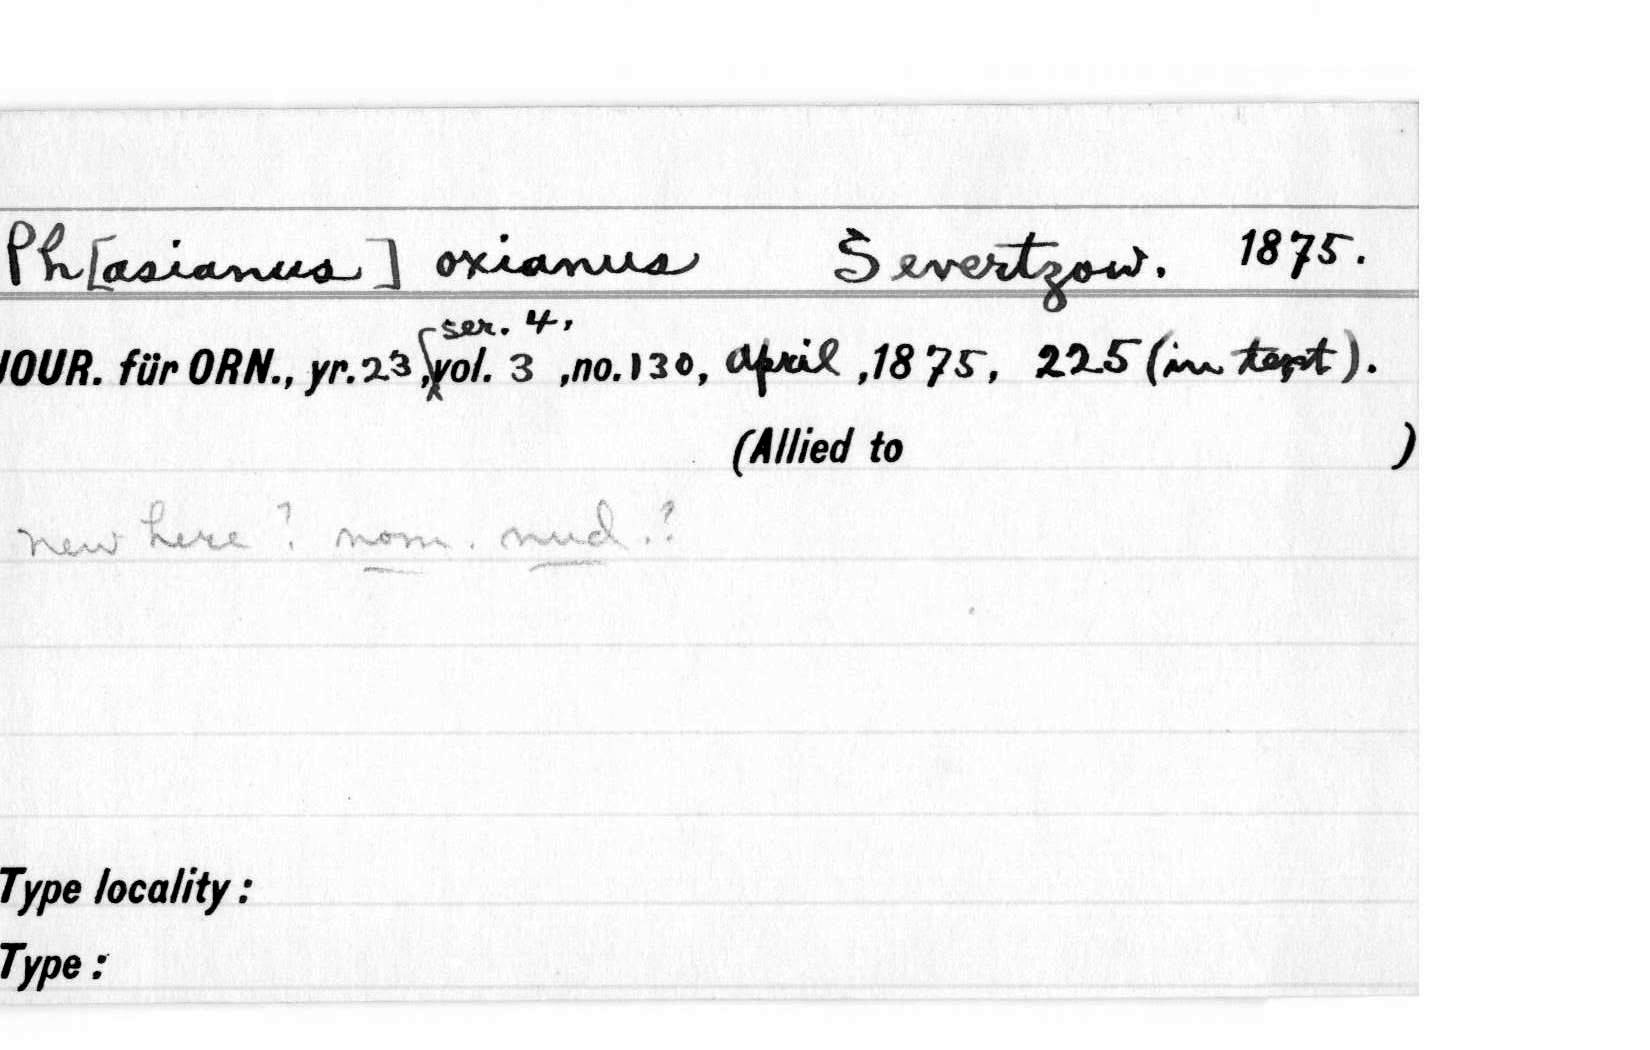 Ph[asianus] oxianus Severtzow. 1875.
JOUR. für ORN., yr. 23, ser. 4, vol. 3, no. 130, April, 1875, 225 (in text).
(Allied to )
new here? nom. nud.?
Type locality:
Type: